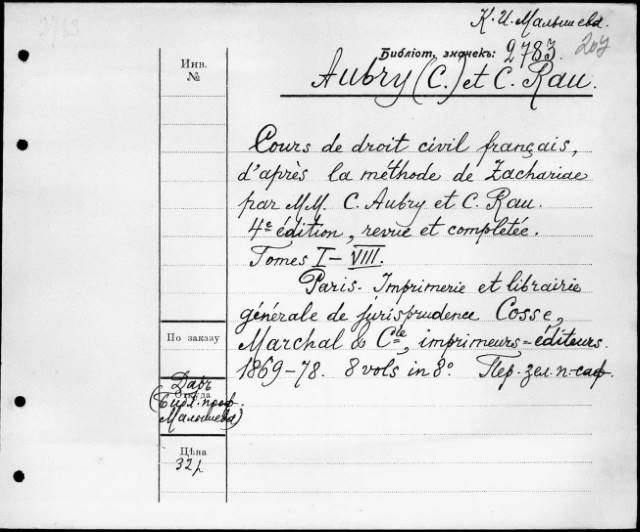 2783
К. И. Малышева.
Библіот. значекъ: 2783. 207
Aubry (C.) et C. Rau.
Инв.
№
Cours de droit civil français,
d'après la méthode de Zachariae
par M.M. C. Aubry et C. Rau.
4e édition, revue et complétée.
Tomes I–VIII.
Paris. Imprimerie et librairie
générale de jurisprudence Cosse,
Marchal & Cie, imprimeurs-éditeurs.
1869-78. 8 vols in 8°. Пер. зел. п-саф.
По заказу
Даръ
Откуда
(Библ. проф.
Малышева)
Цѣна
32 р.